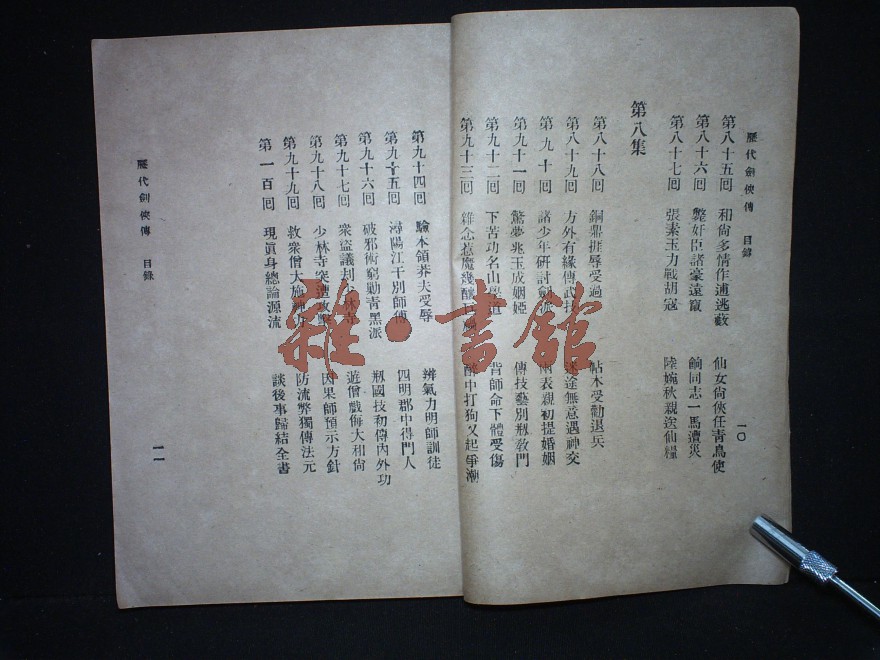 歷代劍俠傳 目錄
一〇
第八十五回 和尙多情作逋逃藪 仙女尙俠任靑鳥使
第八十六回 斃奸臣諸豪遠竄 餉同志一馬遭災
第八十七回 張素玉力戰胡寇 陸婉秋親送仙糧
第八集
第八十八回 銅鼎掛辱受過 帖木受勸退兵
第八十九回 方外有緣傳武技 途無意遇神交
第九十回 諸少年研討劍派 兩表親初提婚姻
第九十一回 驚夢兆玉成姻婭 傳技藝別剏敎門
第九十二回 下苦功名山學道 背師命下體受傷
第九十三回 雜念惹魔幾釀 醉中打狗又起爭潮
第九十四回 驗本領莽夫受辱 辨氣力明師訓徒
第九十五回 潯陽江干別師傅 四明郡中得門人
第九十六回 破邪術窮動靑黑派 剏國技初傳內外功
第九十七回 衆盜議刦少林寺 遊僧戲侮大和尙
第九十八回 少林寺突遭攻擊 因果師預示方針
第九十九回 救衆僧大施神力 防流弊獨傳法元
第一百回 現眞身總論源流 談後事歸結全書
歷代劍俠傳 目錄
一一
雜·書館